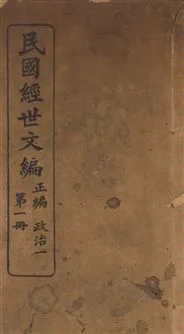 民國經世文編
正編 政治一
第一冊